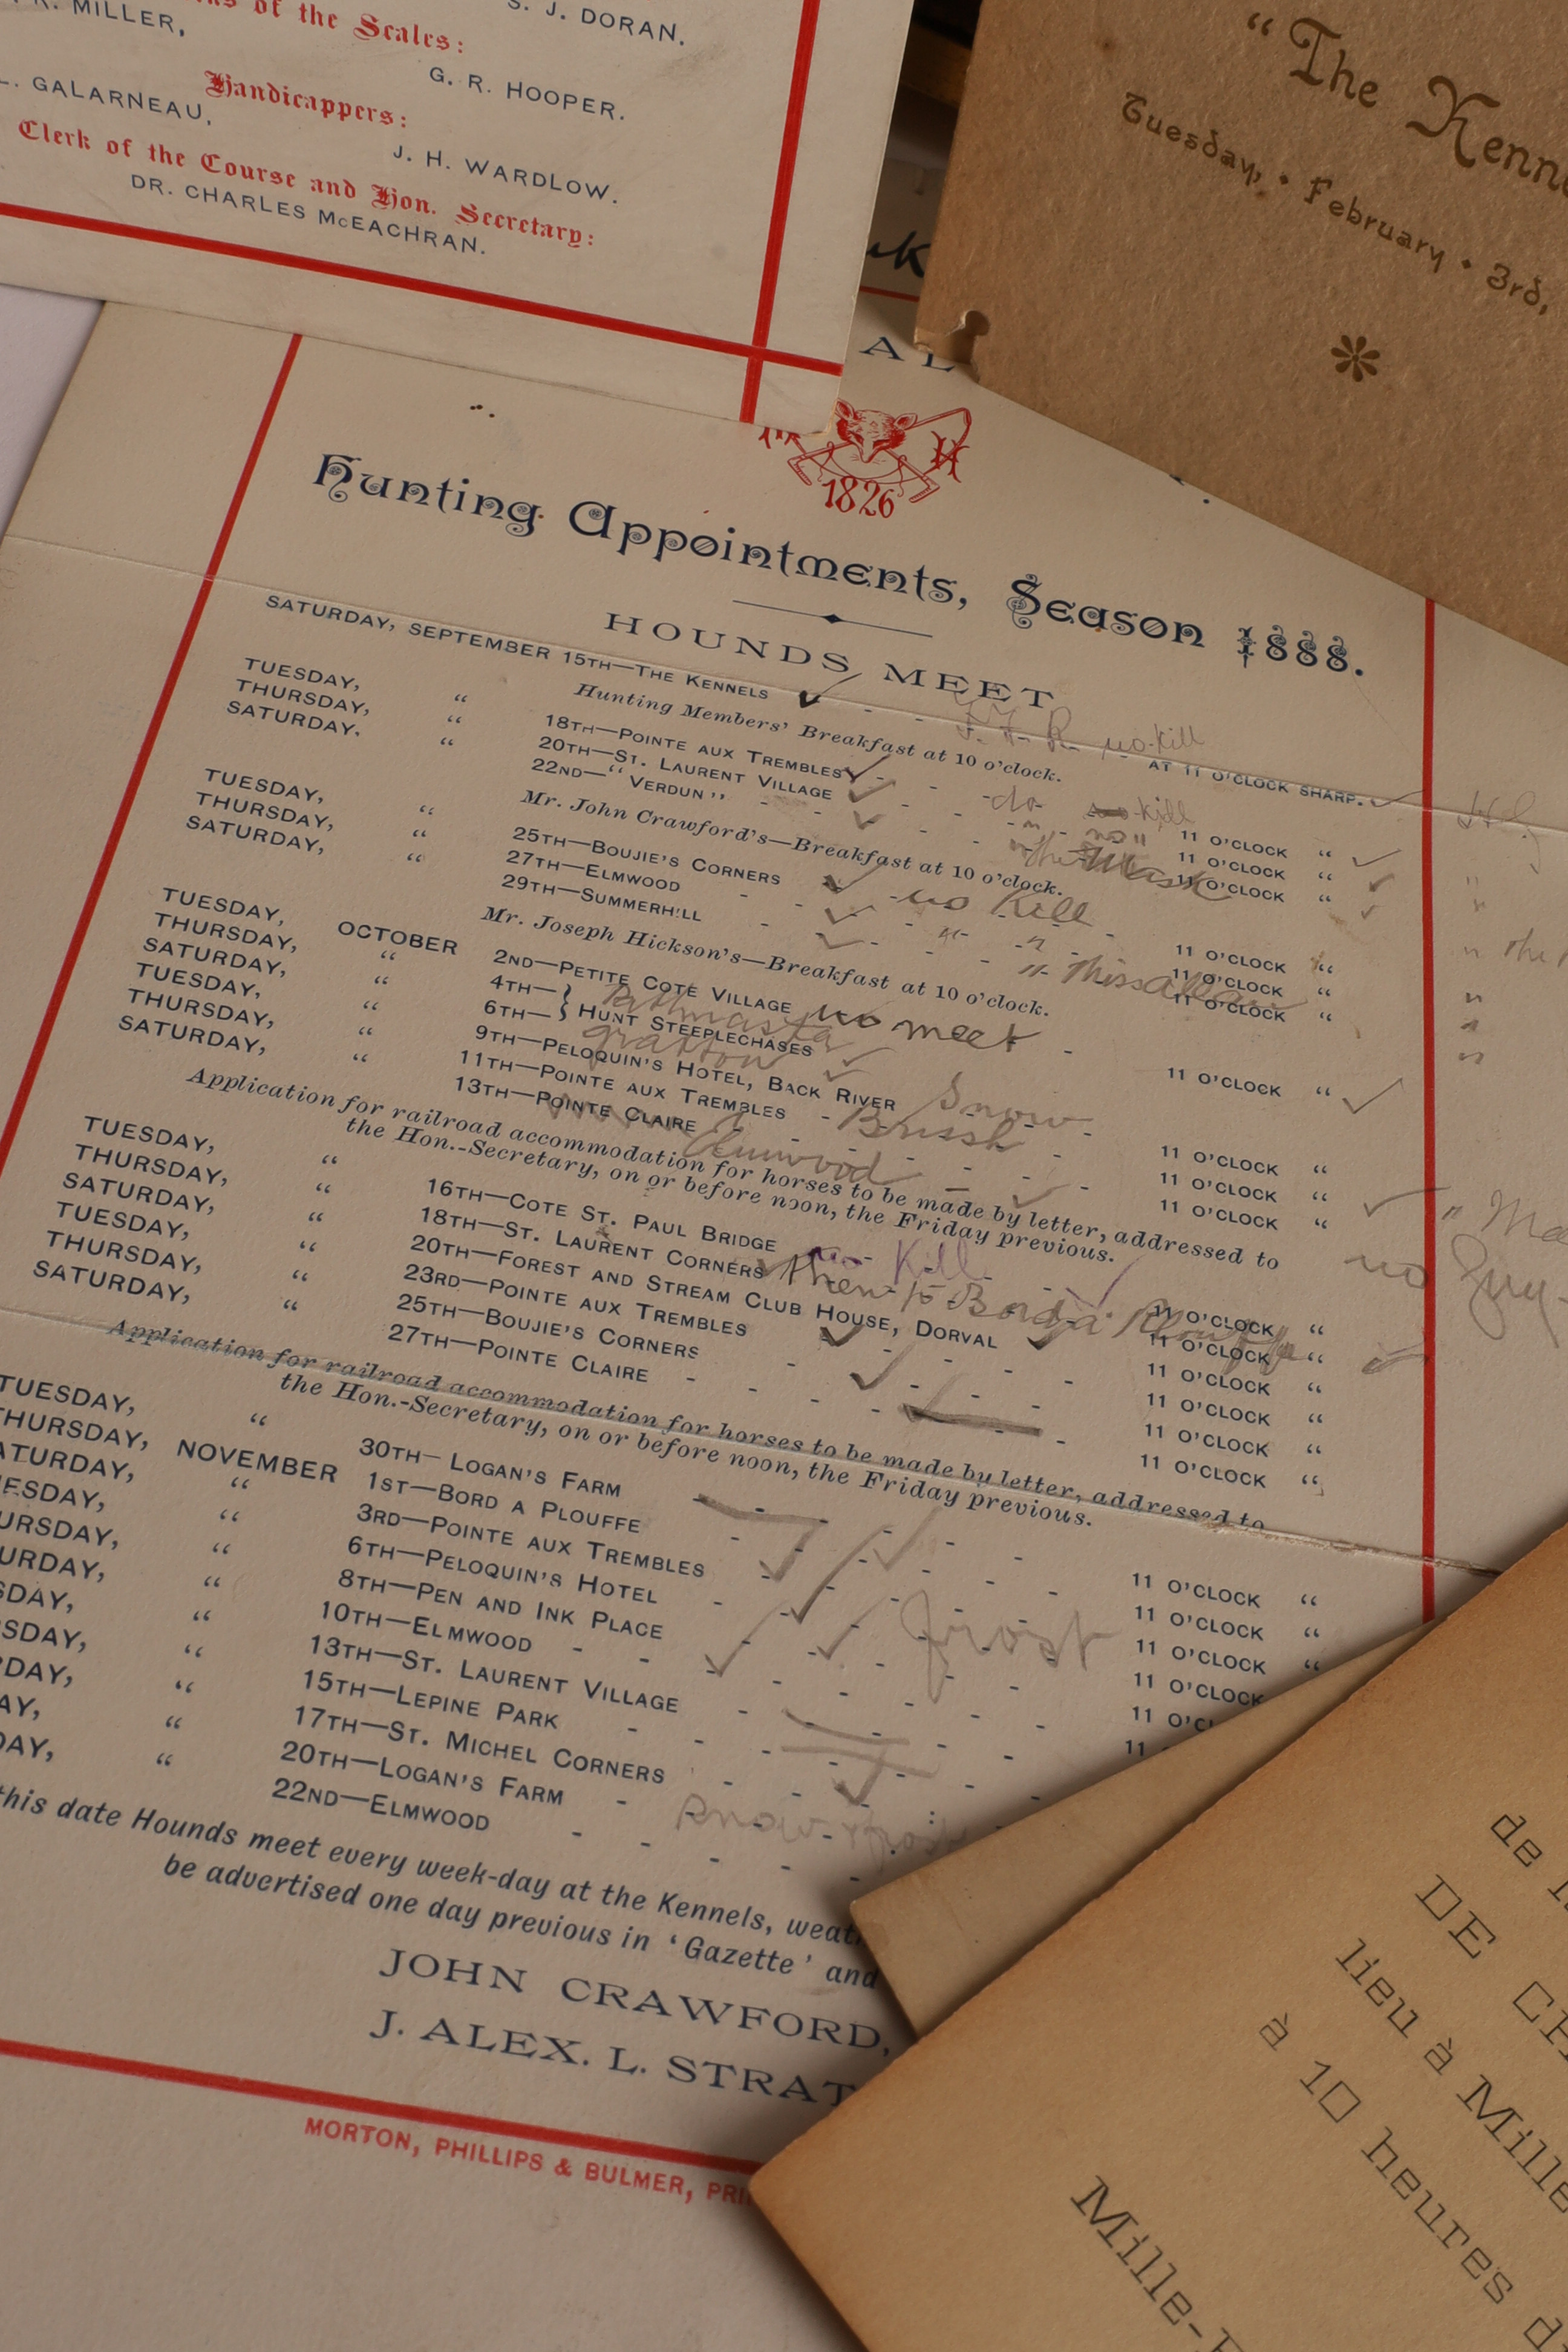 of the Scales:
MILLER,
S. J. DORAN.
G. R. HOOPER.
Handicappers:
GALARNEAU,
J. H. WARDLOW.
Clerk of the Course and Hon. Secretary:
DR. CHARLES McEACHRAN.
"The
Tuesday, • February • 3rd,
1826
Hunting Appointments, Season 1888.
HOUNDS MEET
SATURDAY, SEPTEMBER 15TH—THE KENNELS - - - - AT 11 O'CLOCK SHARP.
no kill
Hunting Members' Breakfast at 10 o'clock.
TUESDAY, " 18TH—POINTE AUX TREMBLES - - 11 O'CLOCK "
do kill
THURSDAY, " 20TH—ST. LAURENT VILLAGE - - 11 O'CLOCK "
" no "
SATURDAY, " 22ND—"VERDUN" - - - 11 O'CLOCK "
Mr. John Crawford's—Breakfast at 10 o'clock.
TUESDAY, " 25TH—BOUJIE'S CORNERS - - 11 O'CLOCK "
no kill
THURSDAY, " 27TH—ELMWOOD - - - 11 O'CLOCK "
" "
SATURDAY, " 29TH—SUMMERHILL - - - 11 O'CLOCK "
" Miss Allan
Mr. Joseph Hickson's—Breakfast at 10 o'clock.
TUESDAY, OCTOBER 2ND—PETITE COTE VILLAGE - 11 O'CLOCK "
no meet
THURSDAY, " 4TH— } HUNT STEEPLECHASES
SATURDAY, " 6TH— }
TUESDAY, " 9TH—PELOQUIN'S HOTEL, BACK RIVER - 11 O'CLOCK "
Snow
THURSDAY, " 11TH—POINTE AUX TREMBLES - - 11 O'CLOCK "
Brush
SATURDAY, " 13TH—POINTE CLAIRE - - - 11 O'CLOCK "
Elmwood
Application for railroad accommodation for horses to be made by letter, addressed to
the Hon.-Secretary, on or before noon, the Friday previous.
no
TUESDAY, " 16TH—COTE ST. PAUL BRIDGE - - 11 O'CLOCK "
no Kill
THURSDAY, " 18TH—ST. LAURENT CORNERS - - 11 O'CLOCK "
then to Bord a Plouffe
SATURDAY, " 20TH—FOREST AND STREAM CLUB HOUSE, DORVAL - 11 O'CLOCK "
TUESDAY, " 23RD—POINTE AUX TREMBLES - - 11 O'CLOCK "
THURSDAY, " 25TH—BOUJIE'S CORNERS - - 11 O'CLOCK "
SATURDAY, " 27TH—POINTE CLAIRE - - - 11 O'CLOCK "
Application for railroad accommodation for horses to be made by letter, addressed to
the Hon.-Secretary, on or before noon, the Friday previous.
TUESDAY, " 30TH—LOGAN'S FARM - - - 11 O'CLOCK "
THURSDAY, NOVEMBER 1ST—BORD A PLOUFFE - - 11 O'CLOCK "
ATURDAY, " 3RD—POINTE AUX TREMBLES - - 11 O'CLOCK "
ESDAY, " 6TH—PELOQUIN'S HOTEL - - 11 O'CLOCK
URSDAY, " 8TH—PEN AND INK PLACE - - 11 O'C
frost
URDAY, " 10TH—ELMWOOD - - - 11
SDAY, " 13TH—ST. LAURENT VILLAGE - -
SDAY, " 15TH—LEPINE PARK - - -
DAY, " 17TH—ST. MICHEL CORNERS - -
AY, " 20TH—LOGAN'S FARM - - -
DAY, " 22ND—ELMWOOD - - -
Snow & frost
this date Hounds meet every week-day at the Kennels,
be advertised one day previous in 'Gazette' and
JOHN CRAWFORD,
J. ALEX. L. STRAT
MORTON, PHILLIPS & BULMER, PRI
de
DE
lieu à Mille
à 10 heures
Mille-